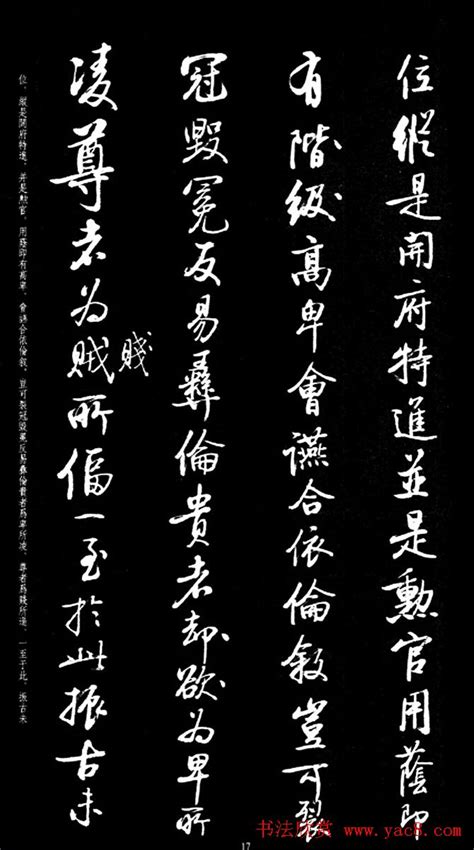 位縱是開府特進並是勲官用蔭即
有階級高卑會讌合依倫敘豈可裂
冠毀冕反易彝倫貴者却欲为卑所
凌尊者为賊所偪一至扵此振古未
賤
位。縱是開府特進。并是勲官。用蔭即有高卑。會讌合依倫叙。豈可裂冠毀冕反易彝倫貴者爲卑所凌。尊者爲賤所逼。一至于此。振古未
17
书法欣赏 www.yac8.com